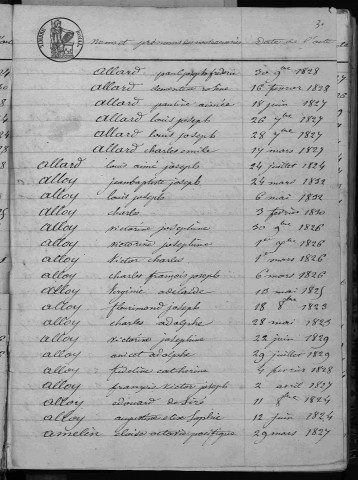 3
noms et prénoms Date de l'acte
allard paul joseph frédéric 30 9bre 1828
allard clementine 16 février 1828
allard pauline aimée 18 juin 1827
allard louis joseph 26 7bre 1827
allard louis joseph 28 7bre 1827
allard charles emile 17 mars 1827
allard louis aimé joseph 24 juillet 1824
alloy jean baptiste joseph 24 mars 1832
alloy louis joseph 6 mai 1832
alloy charles 3 février 1830
alloy victorine josephine 30 9bre 1826
alloy victorine josephine 1er 9bre 1826
alloy victor charles 1er mars 1826
alloy charles françois joseph 6 mars 1826
alloy virginie adelaide 10 mai 1825
alloy florimond joseph 18 8bre 1823
alloy charles adolphe 28 mai 1823
alloy victorine josephine 22 juin 1829
alloy aimé adolphe 29 juillet 1829
alloy fideline catherine 4 février 1828
alloy françois victor joseph 2 avril 1827
alloy edouard desiré 11 8bre 1824
alloy augustine elise sophie 12 juin 1824
amelin eloise octavie pacifique 29 mars 1827